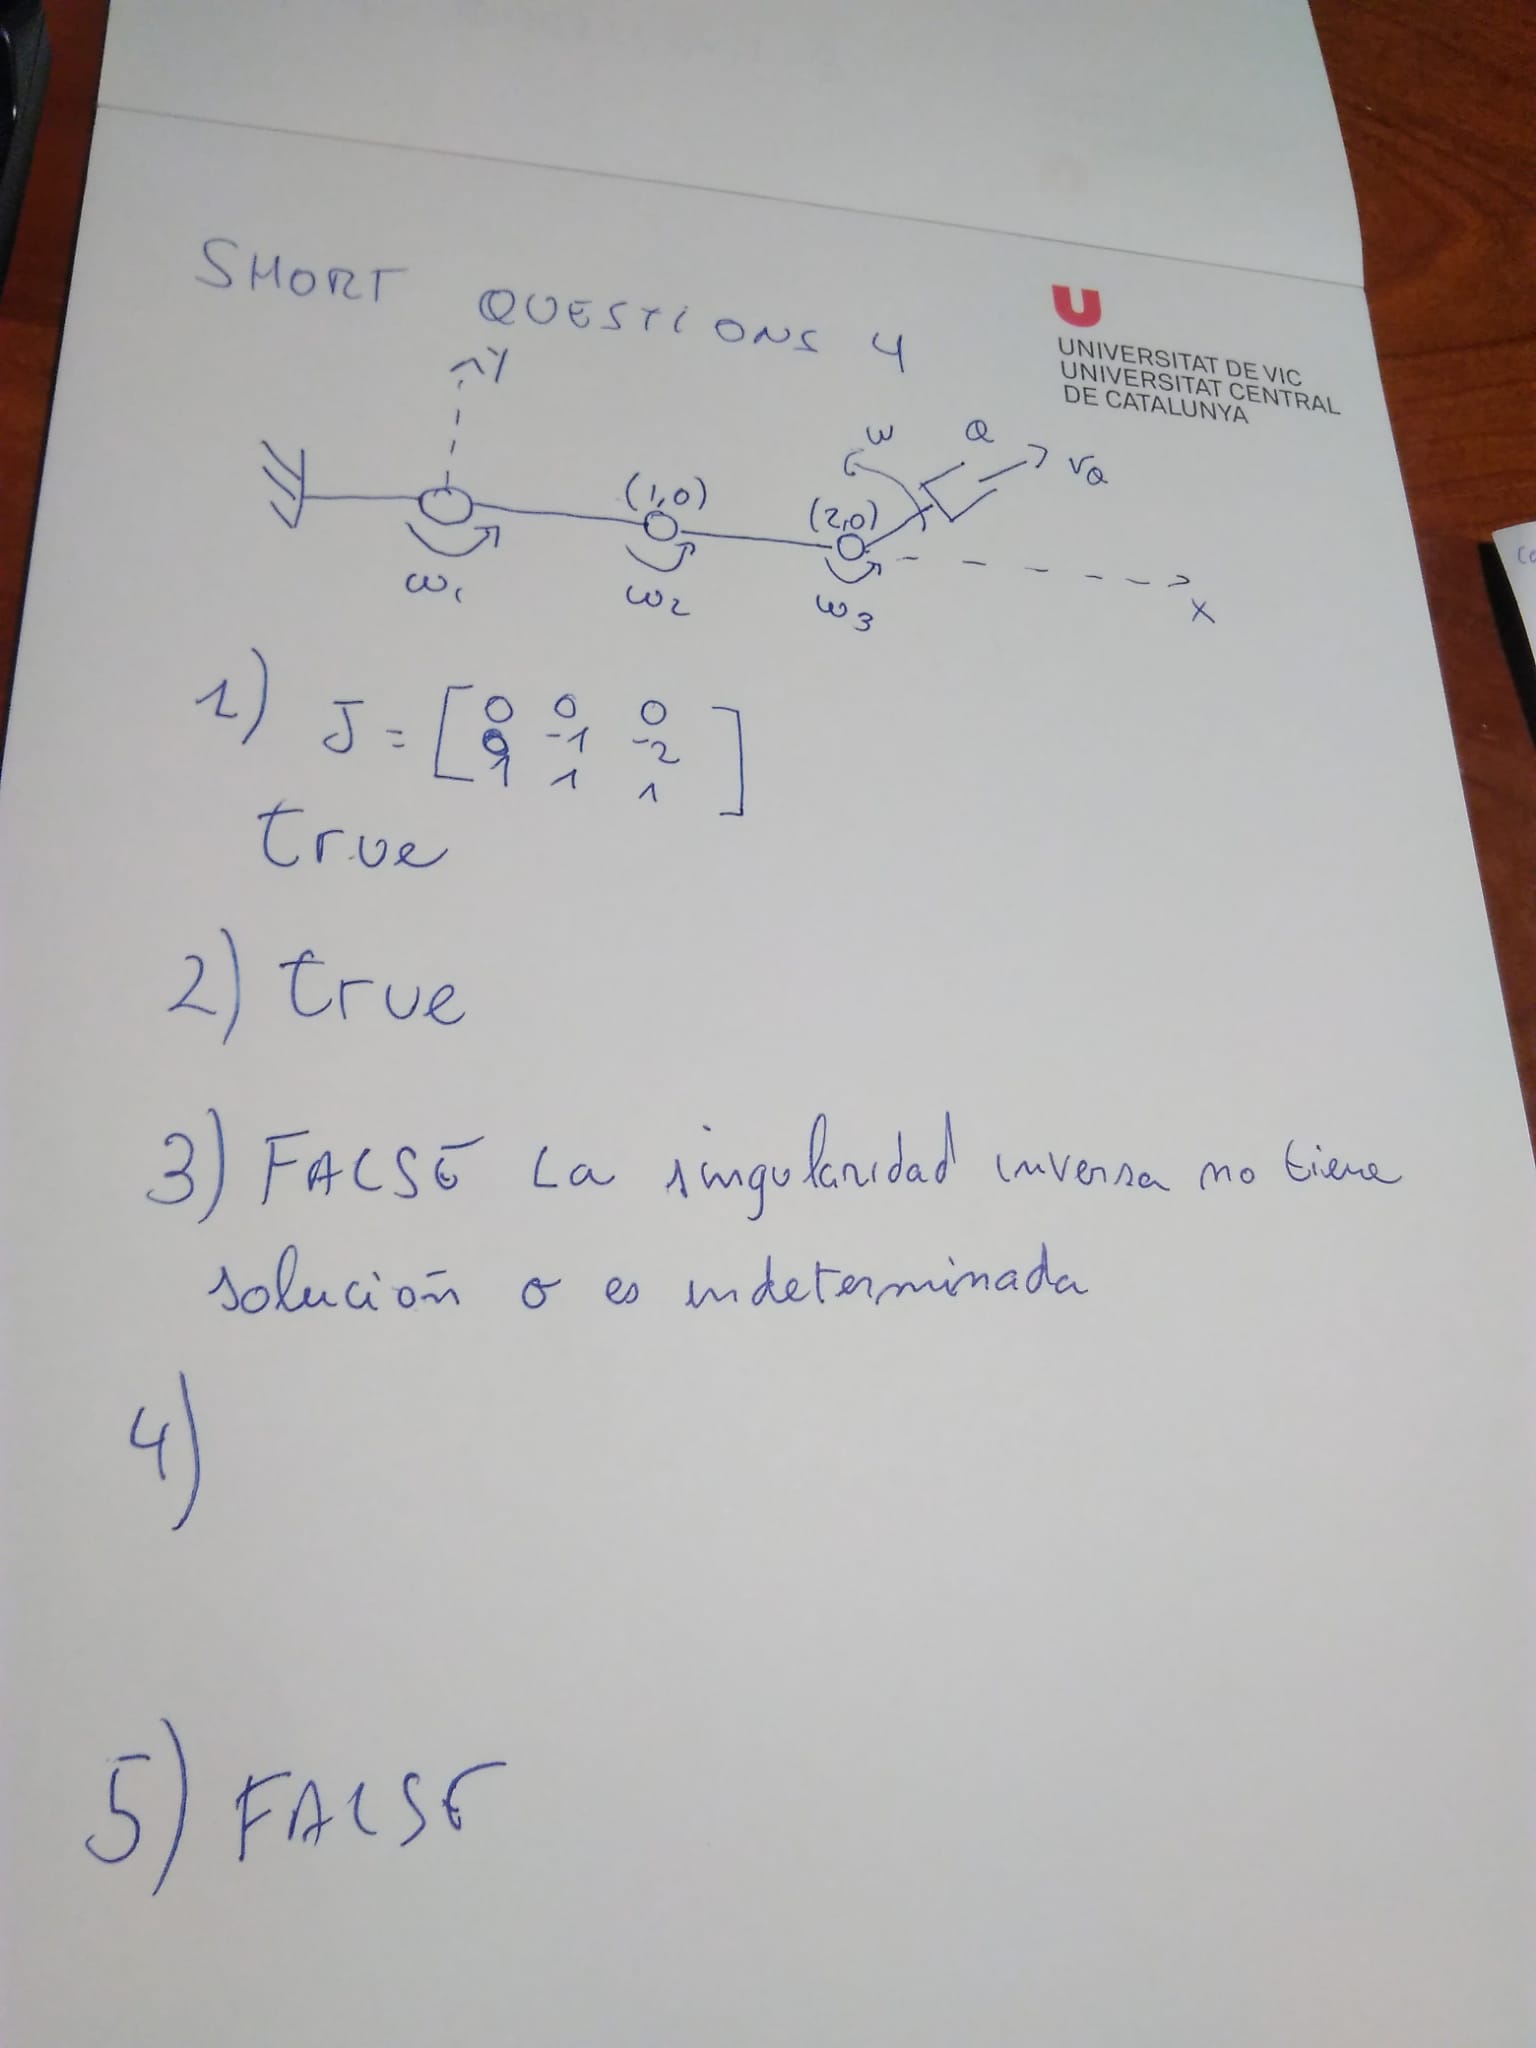 SHORT QUESTIONS 4
U
UNIVERSITAT DE VIC
UNIVERSITAT CENTRAL
DE CATALUNYA
Y
(1,0)
(2,0)
ω
Q
vQ
ω1
ω2
ω3
x
1) J = [ 0 0 0
0 -1 -2
1 1 1 ]
true
2) true
3) FALSE La singularidad inversa no tiene
solución o es indeterminada
4)
5) FALSE